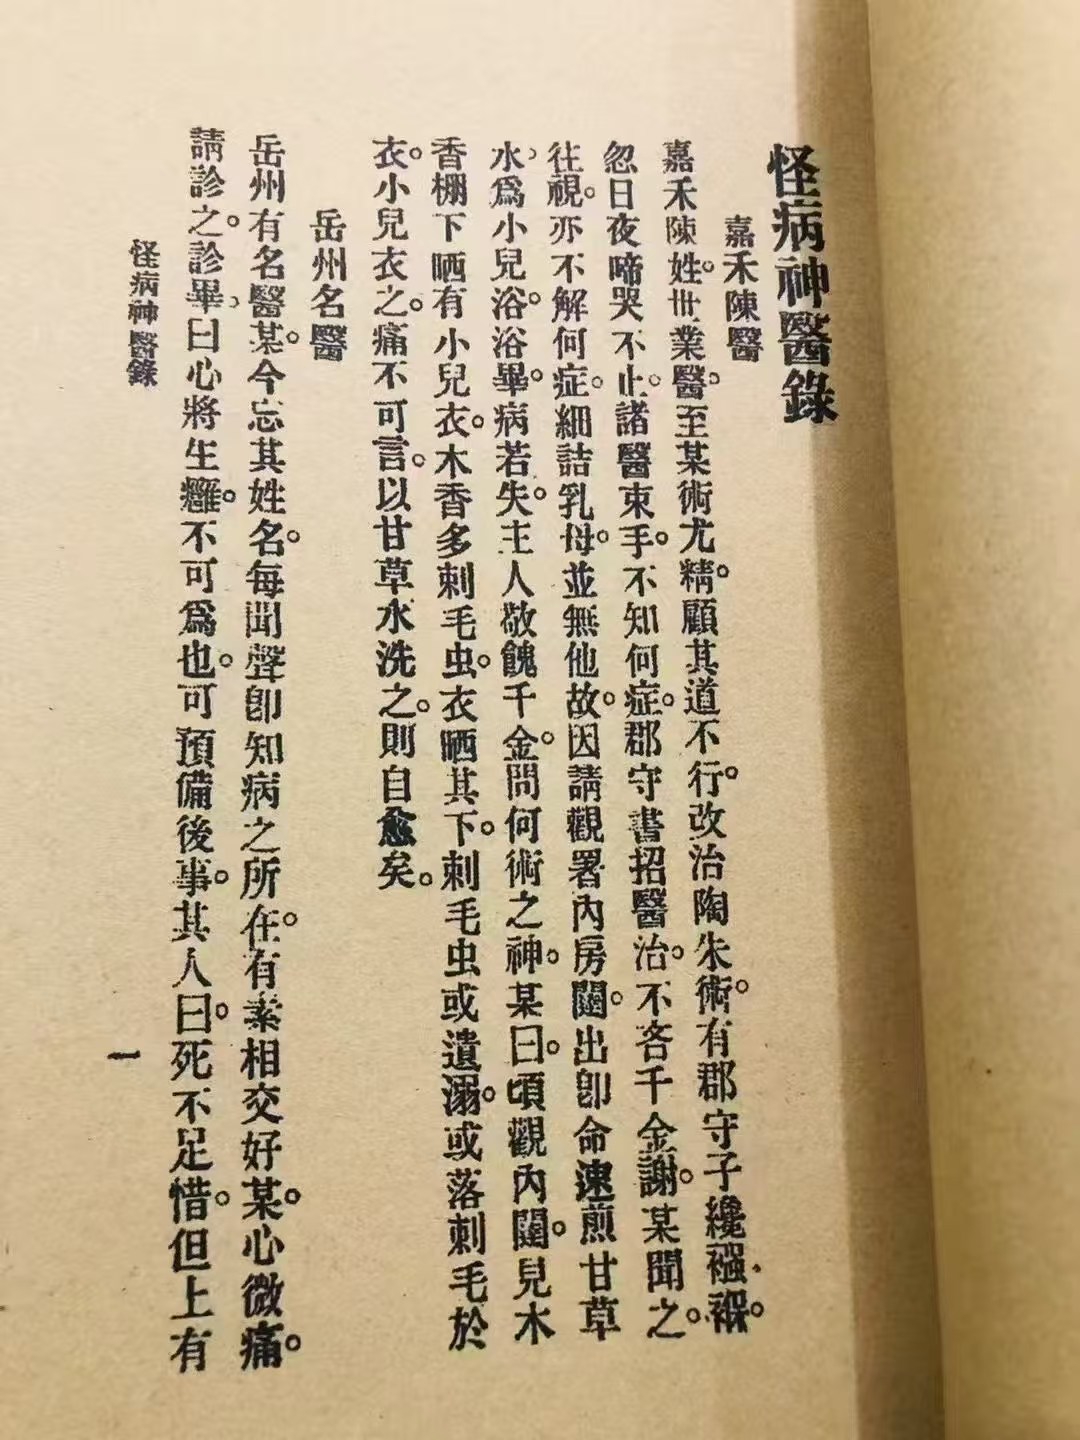 怪病神醫錄
嘉禾陳醫
嘉禾陳姓。世業醫。至某術尤精。顧其道不行。改治陶朱術。有郡守子纔襁褓。
忽日夜啼哭不止。諸醫束手。不知何症。郡守書招醫治。不吝千金謝。某聞之。
往視。亦不解何症。細詰乳母。並無他故。因請觀署內房闈。出卽命速煎甘草
水、爲小兒浴。浴畢。病若失。主人敬餽千金。問何術之神。某曰。頃觀內闈。見木
香棚下晒有小兒衣。木香多刺毛虫。衣晒其下。刺毛虫或遺溺。或落刺毛於
衣。小兒衣之。痛不可言。以甘草水洗之。則自愈矣。
岳州名醫
岳州有名醫某。今忘其姓名。每聞聲卽知病之所在。有素相交好某。心微痛。
請診之。診畢、曰心將生癰。不可爲也。可預備後事。其人曰。死不足惜。但上有
怪病神醫錄
一